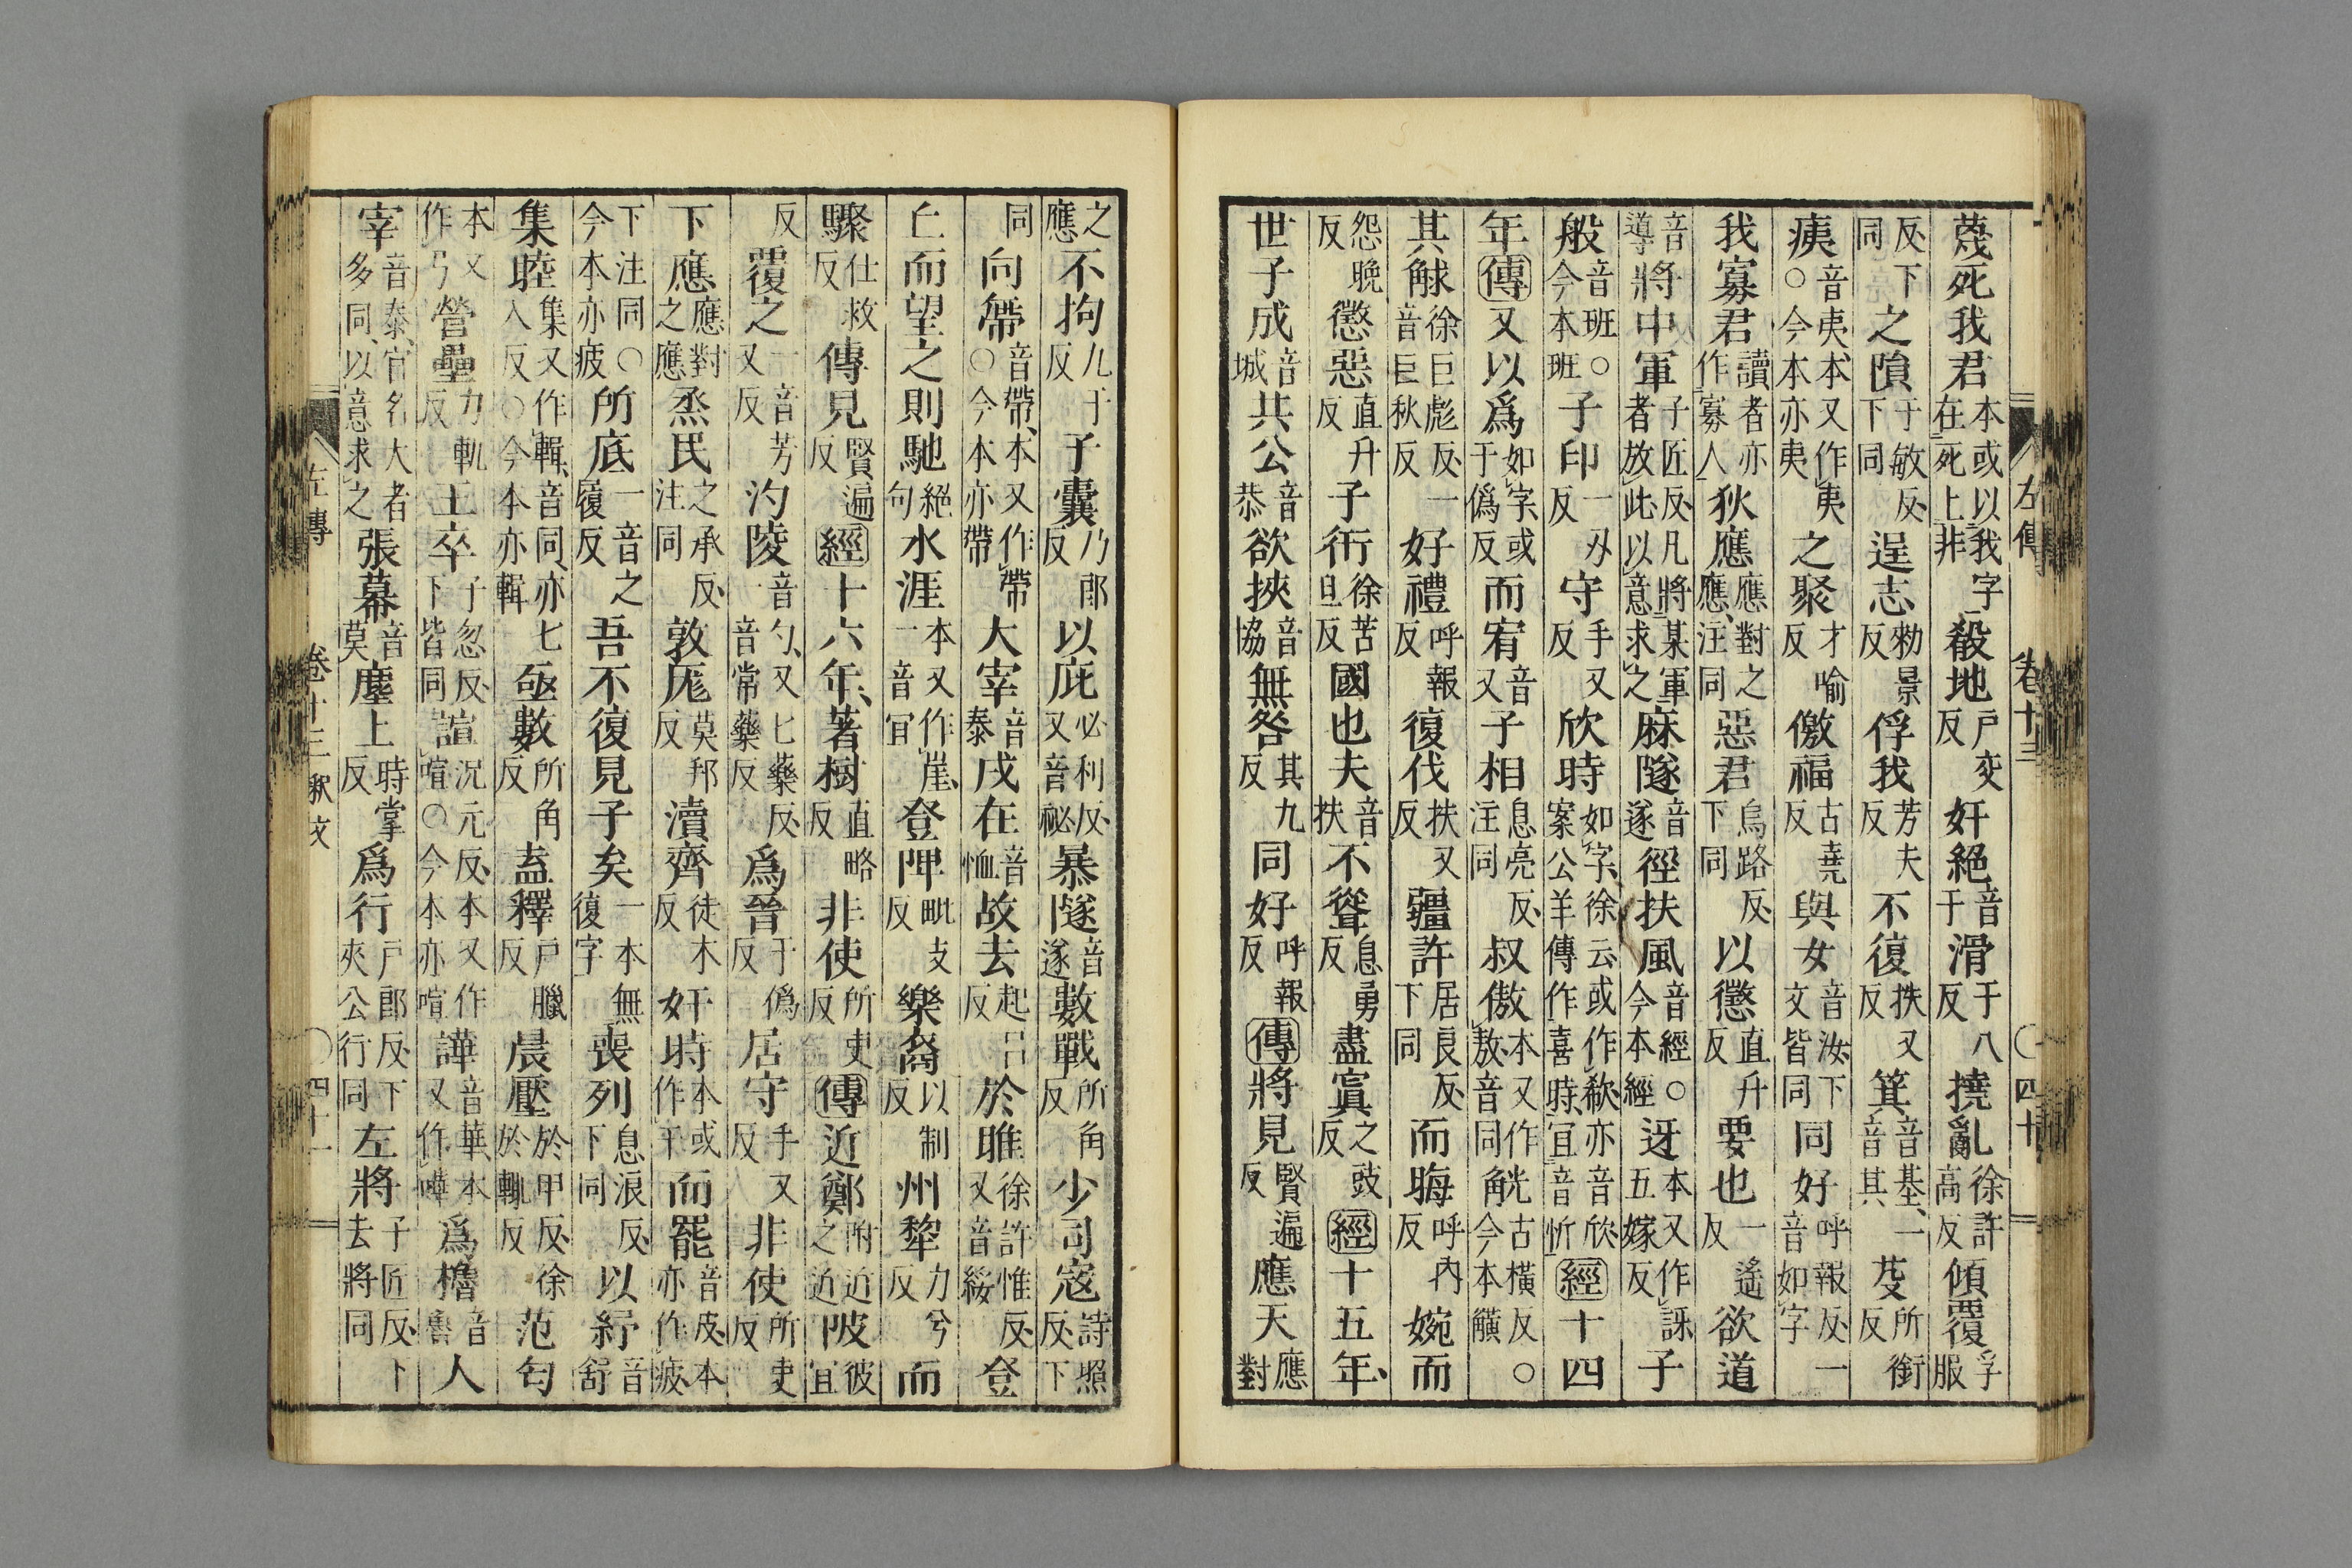 蔑死我君本或以我字在死上非殽地戸交反奸絕音干滑于八反撓亂徐許高反傾覆孚服
反下同之隕于敏反下同逞志勑景反俘我芳夫反不復扶又反箕音基一音其芟所銜反
痍音夷本又作夷○今本亦夷之聚才喻反儌福古堯反與女音汝下文皆同同好呼報反一音如字
我寡君讀者亦作寡人狄應應對之應注同惡君烏路反下同以懲直升反要也一遙反欲道
音導將中軍子匠反凡將某軍者放此以意求之麻隧音遂徑扶風音經○今本經迓本又作訝五嫁反子
般音班○今本班子印一刃反守手又反欣時如字徐云或作欷亦音欣案公羊傳作喜時宜音忻經十四
年傳又以爲如字或于僞反而宥音又子相息亮反注同叔傲本又作敖音同觥古橫反○今本觵
其觩徐巨彪反一音巨秋反好禮呼報反復伐扶又反疆許居良反下同而晦呼內反婉而
怨晚反懲惡直升反子衎徐苦旦反國也夫音扶不聳息勇反盡寘之豉反經十五年
世子成音城共公音恭欲挾音協無咎其九反同好呼報反傳將見賢遍反應天應對
之應不拘九于反子囊乃郎反以庇必利反又音祕暴隧音遂數戰所角反少司寇詩照反下
同向帶音帶本又作帶○今本亦帶大宰音泰戌在音恤故去起呂反於睢徐許惟反又音綏登
丘而望之則馳絕句水涯本又作崖一音宜登陴毗支反樂裔以制反州犂力兮反而
驟仕救反傳見賢遍反經十六年著樹直略反非使所吏反傳近鄭附近之近陂彼宜
反覆之一音芳又反汋陵音勺又匕藥反一音常藥反爲晉于僞反居守手又反非使所吏反
下應應對之應烝民之承反注同敦厖莫邦反瀆齊徒木反奸時本或作干而罷音皮本亦作疲
下注同○今本亦疲所底一音之履反吾不復見子矣一本無復字喪列息浪反下同以紓音舒
集睦集又作輯音同亦七入反○今本亦輯亟數所角反盍釋戸臘反晨壓於甲反徐於輒反范匄
本又作丐營壘力軌反王卒子忽反下皆同諠況元反本又作喧○今本亦喧譁音華本又作嘩爲櫓音魯人
宰音泰官名大者多同以意求之張幕音莫塵上時掌反爲行戸郎反下夾公行同左將子匠反下去將同
左傳 卷十三 ○四十
左傳 卷十三 ○四十一